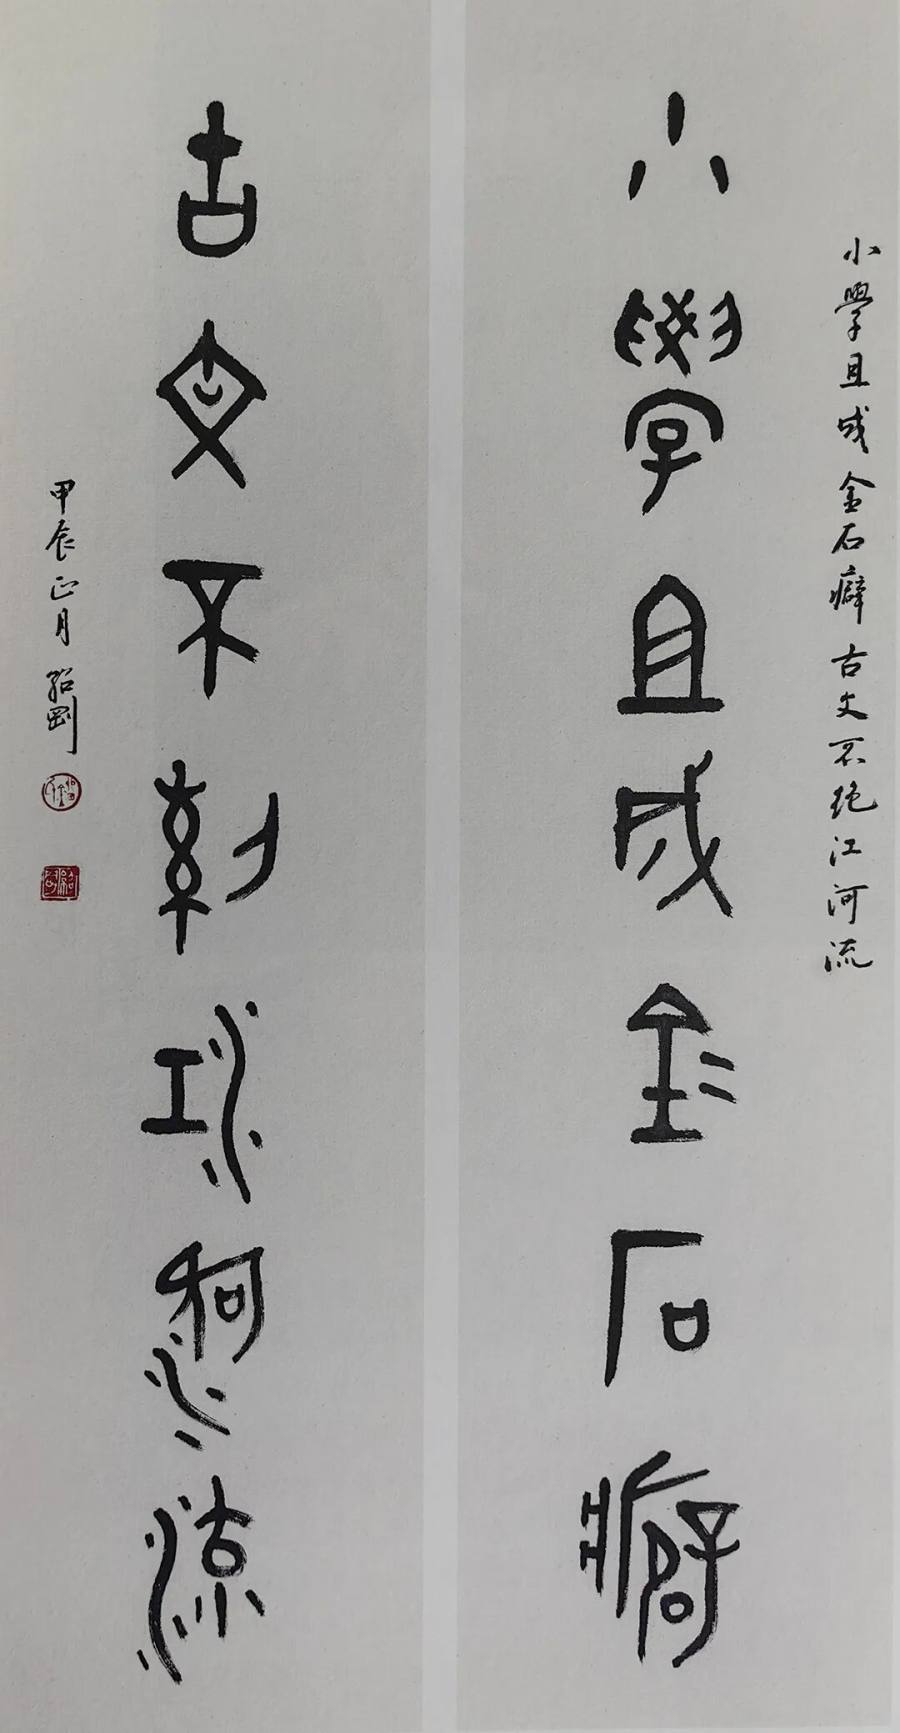 小學且成金石癖古文不絕江河流
小學且成金石癖
古文不絕江河流
甲辰正月 紹剛